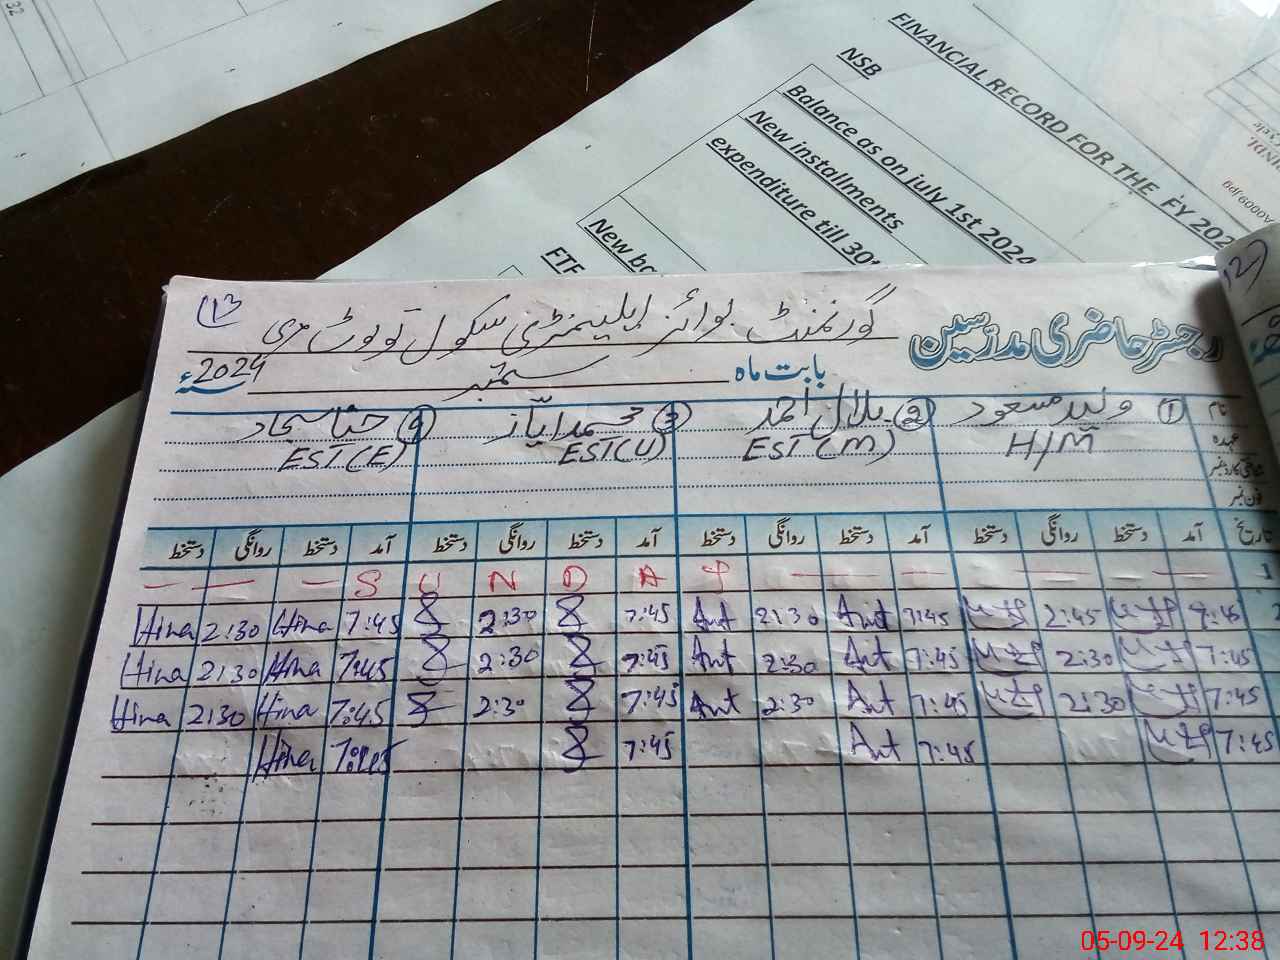 32
FINANCIAL RECORD FOR THE FY 202
NSB
Balance as on july 1st 2024
New installments
expenditure till 30
New ba
FTF
(13
رجسٹر حاضری مدرسین گورنمنٹ بوائز ایلیمنٹری سکول
بابت ماہ ستمبر 2024ء
نام ① ولید مسعود ② بلال احمد ③ محمد ایاز ④ حنا سجاد
عہدہ H/M EST (M) EST(U) EST(E)
شناختی کارڈ نمبر
فون نمبر
تاریخ آمد دستخط روانگی دستخط آمد دستخط روانگی دستخط آمد دستخط روانگی دستخط آمد دستخط روانگی دستخط
1 — — — — — — — Y A D N U S — — —
2 7:45 2:45 7:45 Ant 2:30 Ant 7:45 2:30 7:45 Hina 2:30 Hina
7:45 2:30 7:45 Ant 2:30 Ant 7:45 2:30 7:45 Hina 2:30 Hina
7:45 2:30 7:45 Ant 2:30 Ant 7:45 2:30 7:45 Hina 2:30 Hina
7:45 7:45 Ant 7:45 7:45 Hina
05-09-24 12:38